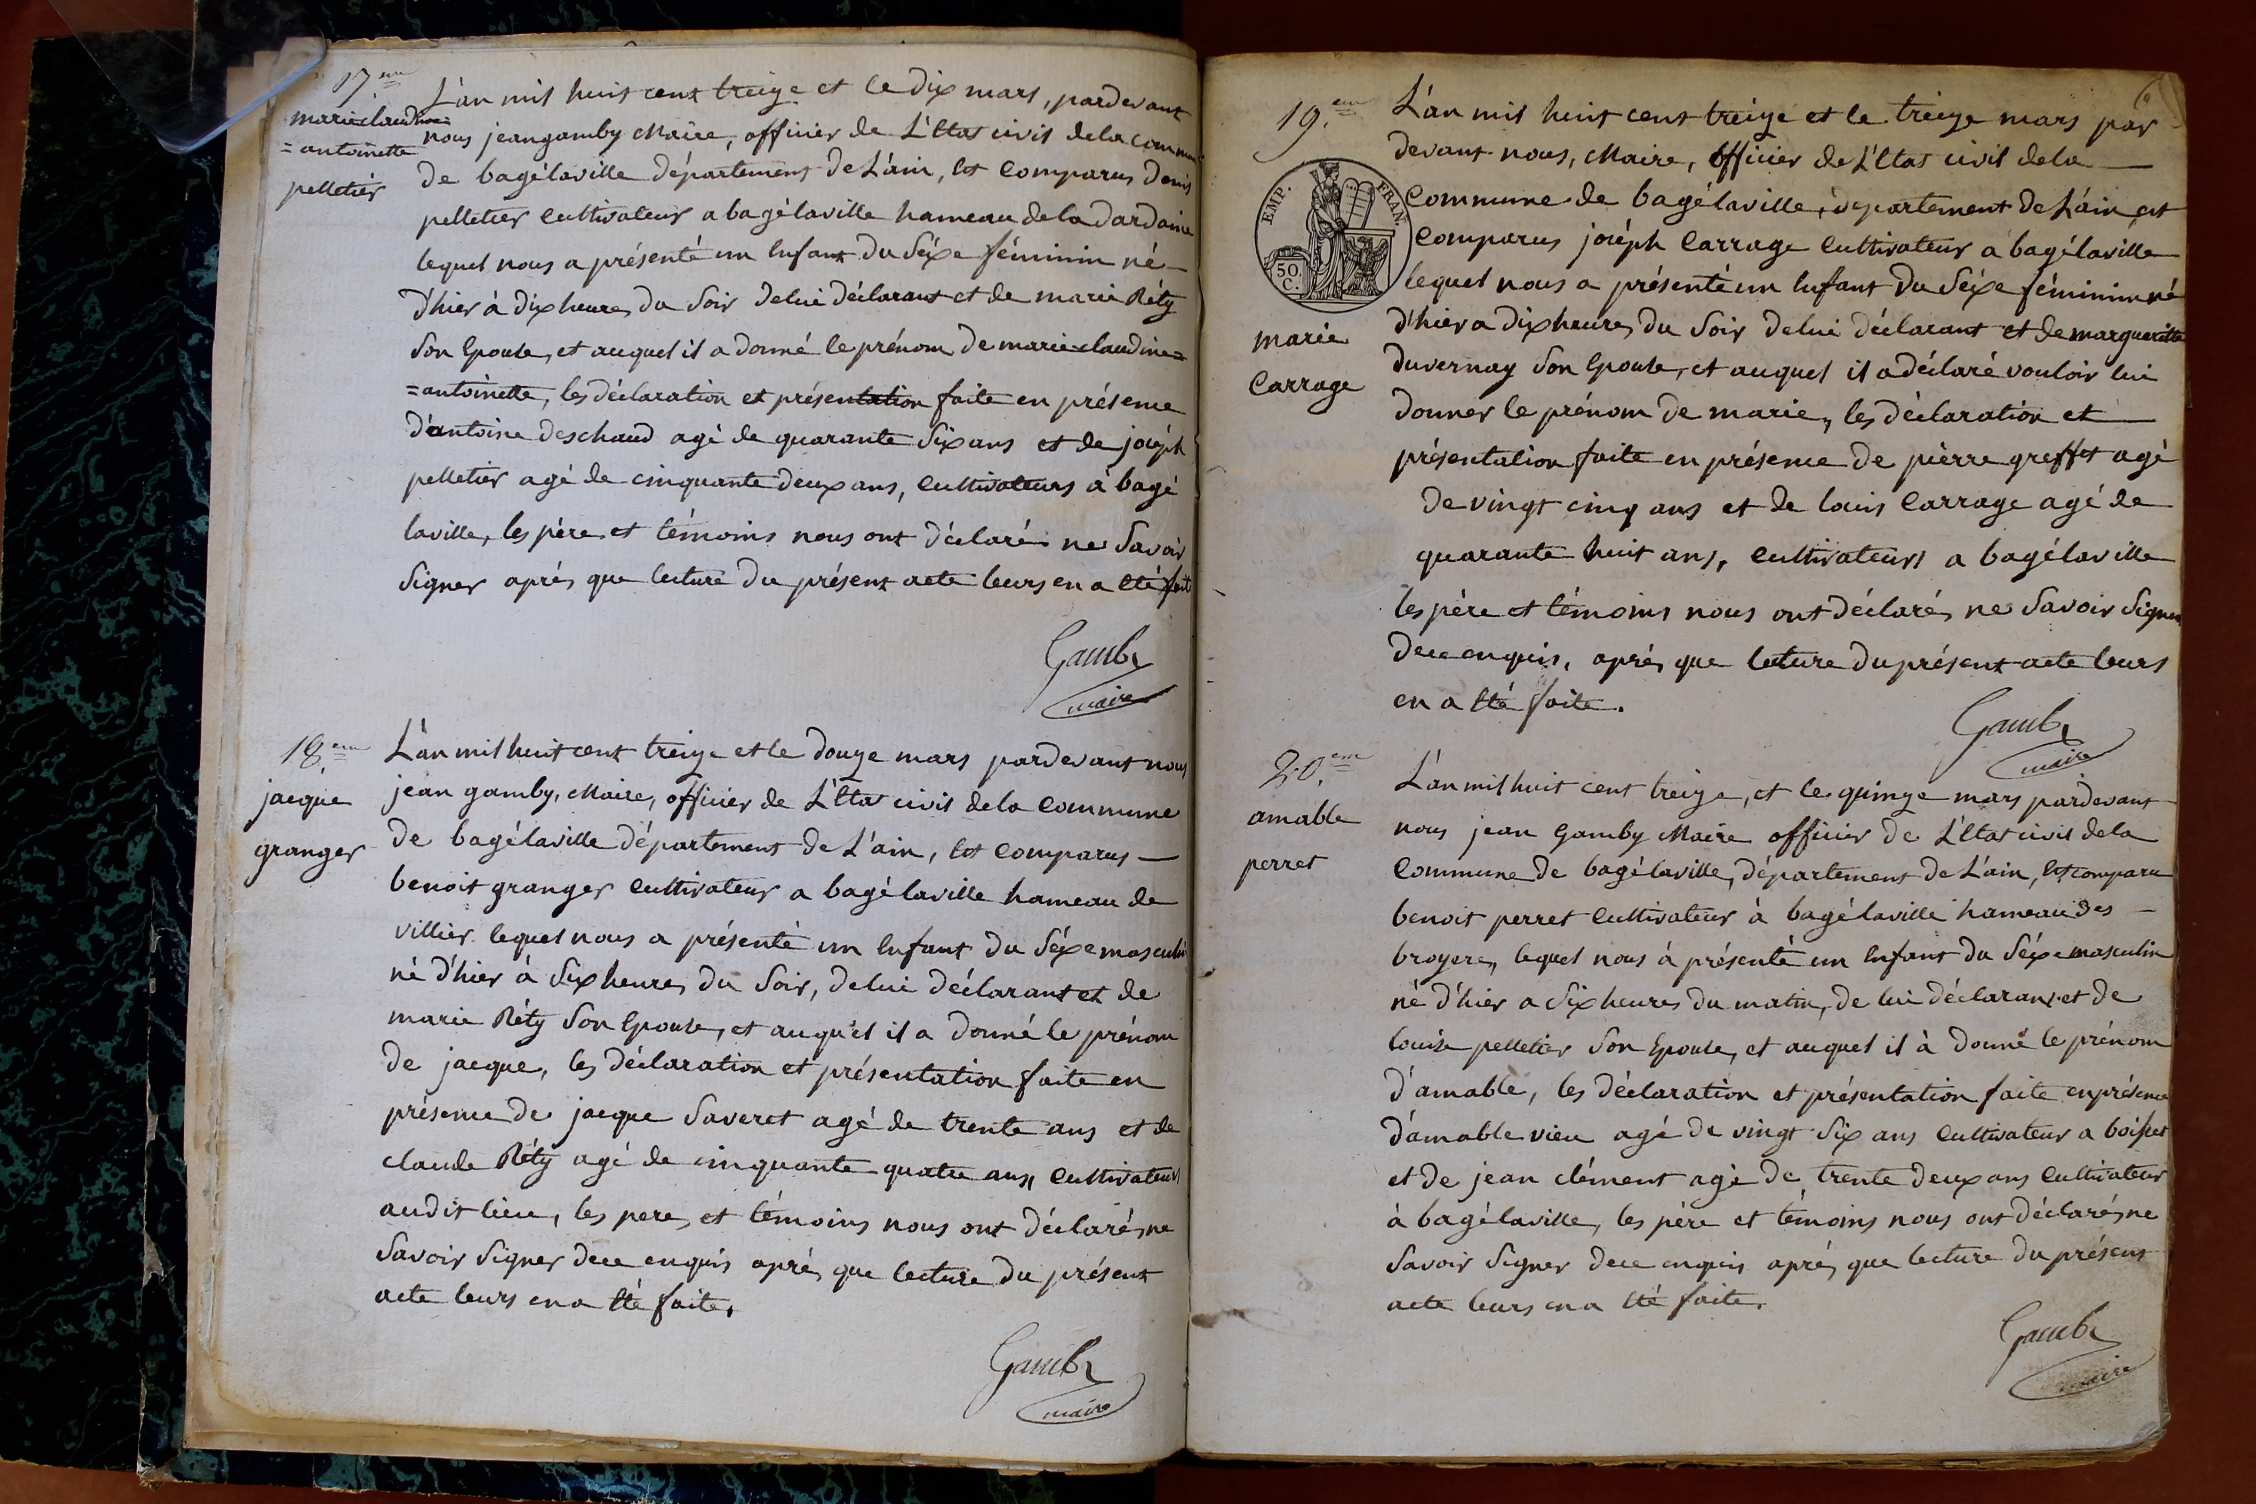 17.eme
marie claudine
= antoinette
pelletier
L'an mil huit cent treize et le dix mars, pardevant
nous jean gamby Maire, officier de L'Etat civil de la commune
de bagélaville département de L'ain, est comparus denis
pelletier cultivateur a bagélaville hameau de la dardaine
lequel nous a présenté un Enfant du Séxe féminin né
d'hier à dix heures du Soir de lui déclarant et de marie Réty
Son Epouse, et auquel il a donné le prénom de marie claudine=
=antoinette, les déclaration et présentation faite en présence
d'antoine deschaud agé de quarante Six ans et de joséph
pelletier agé de cinquante deux ans, cultivateurs à bagé
laville, les père et témoins nous ont déclarés ne Savoir
Signer après que lecture du présent acte leurs en a Eté fait
Gamby
maire
18.eme
jacque
granger
L'an mil huit cent treize et le douze mars pardevant nous
jean gamby, Maire, officier de L'Etat civil de la Commune
de bagélaville département de L'ain, est comparus
benoit granger cultivateur a bagélaville hameau de
villier lequel nous a présenté un Enfant du Séxe masculin
né d'hier à Six heures du Soir, de lui déclarant et de
marie Réty Son Epouse, et auquel il a donné le prénom
de jacque, les déclaration et présentation faite en
présence de jacque Saveret agé de trente ans et de
claude Réty agé de cinquante quatre ans, cultivateurs
audit lieu, les pere et témoins nous ont déclarés ne
Savoir Signer de ce enquis après que lecture du présent
acte leurs en a Eté faite.
Gamby
maire
6
19.eme
EMP. FRAN.
50. C.
marie
Carrage
L'an mil huit cent treize et le treize mars par
devant nous, Maire, officier de L'Etat civil de la
Commune de bagélaville, département de L'ain est
Comparus joséph Carrage Cultivateur à bagélaville
lequel nous a présenté un Enfant du Séxe féminin né
d'hier a dix heures du Soir de lui déclarant et de margueritte
duvernay Son Epouse, et auquel il a déclaré vouloir lui
donner le prénom de marie, les déclaration et
présentation faite en présence de pièrre greffet agé
de vingt cinq ans et de louis Carrage agé de
quarante huit ans, cultivateurs a bagélaville
les père et témoins nous ont déclarés ne Savoir Signer
de ce enquis, après que lecture du présent acte leurs
en a Eté faite.
Gamby
maire
20.eme
amable
perret
L'an mil huit cent treize, et le quinze mars pardevant
nous jean Gamby Maire officier de L'Etat civil de la
Commune de bagélaville, département de L'ain, est comparu
benoit perret cultivateur à bagélaville hameau des
broyere, lequel nous à présenté un Enfant du Séxe masculin
né d'hier a Six heures du matin, de lui déclarant et de
louise pelletier Son Epouse, et auquel il à donné le prénom
d'amable, les déclaration et présentation faite en présence
d'amable vieu agé de vingt Six ans cultivateur a boisset
et de jean clément agé de trente deux ans cultivateur
à bagélaville, les père et témoins nous ont déclarés ne
Savoir Signer de ce enquis après que lecture du présent
acte leurs en a Eté faite.
Gamby
maire